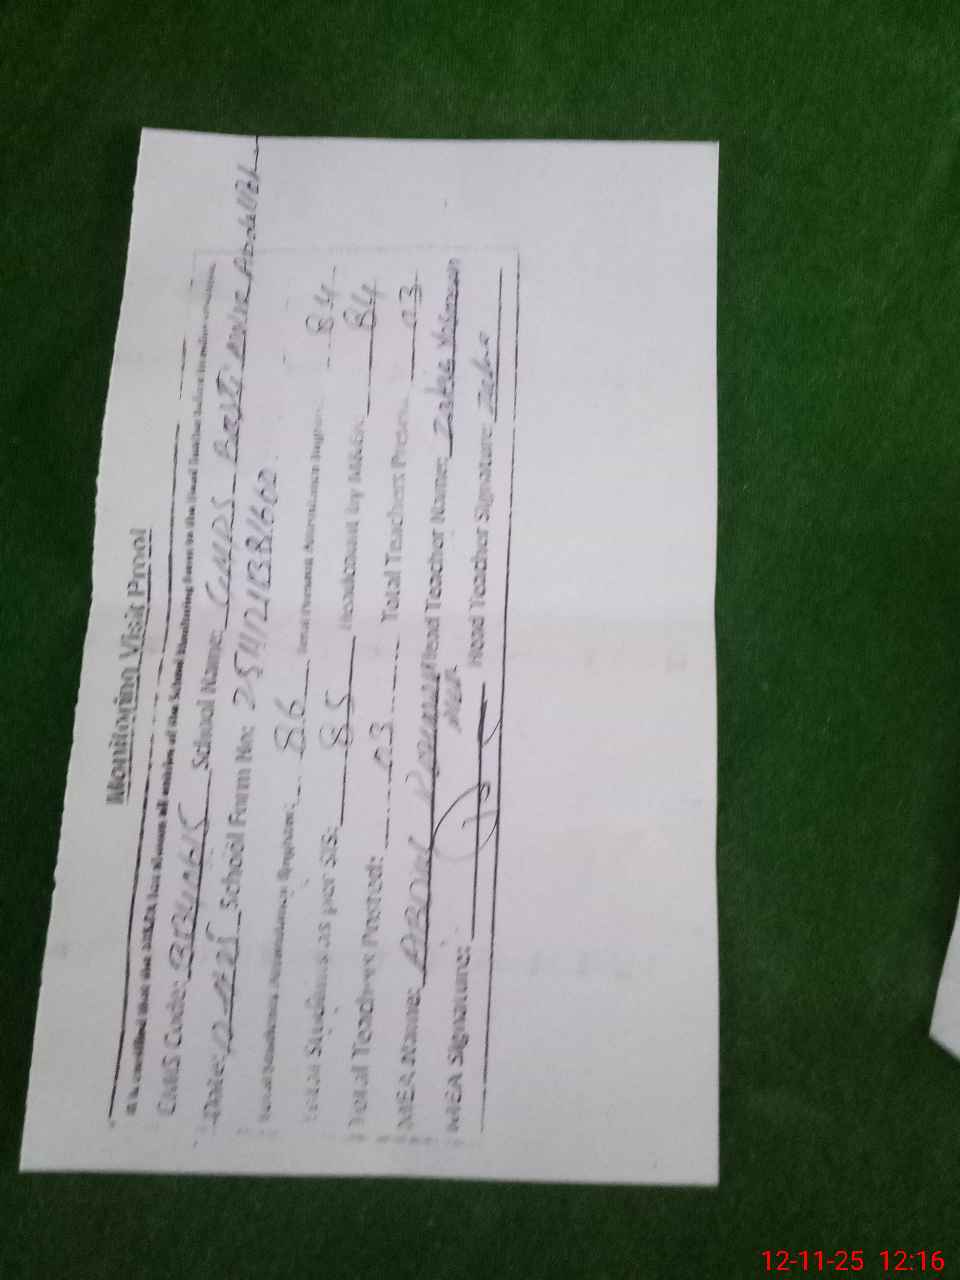 Monitoring Visit Proof
It is certified that the MEA has shown all entries of the School Monitoring Form to the Head Teacher before
EMIS Code: School Name: GMPS Basti
Date: 12-11-25 School Form No: 2511121BB1660
Total Students Attendance Register: 86 Total Present Attendance Register 84
Total Students as per SIS: 85 Headcount by MEA: 84
Total Teachers Posted: 03 Total Teachers Present 03
MEA Name: Abdul Head Teacher Name:
MEA
MEA Signature: Head Teacher Signature:
12-11-25 12:16